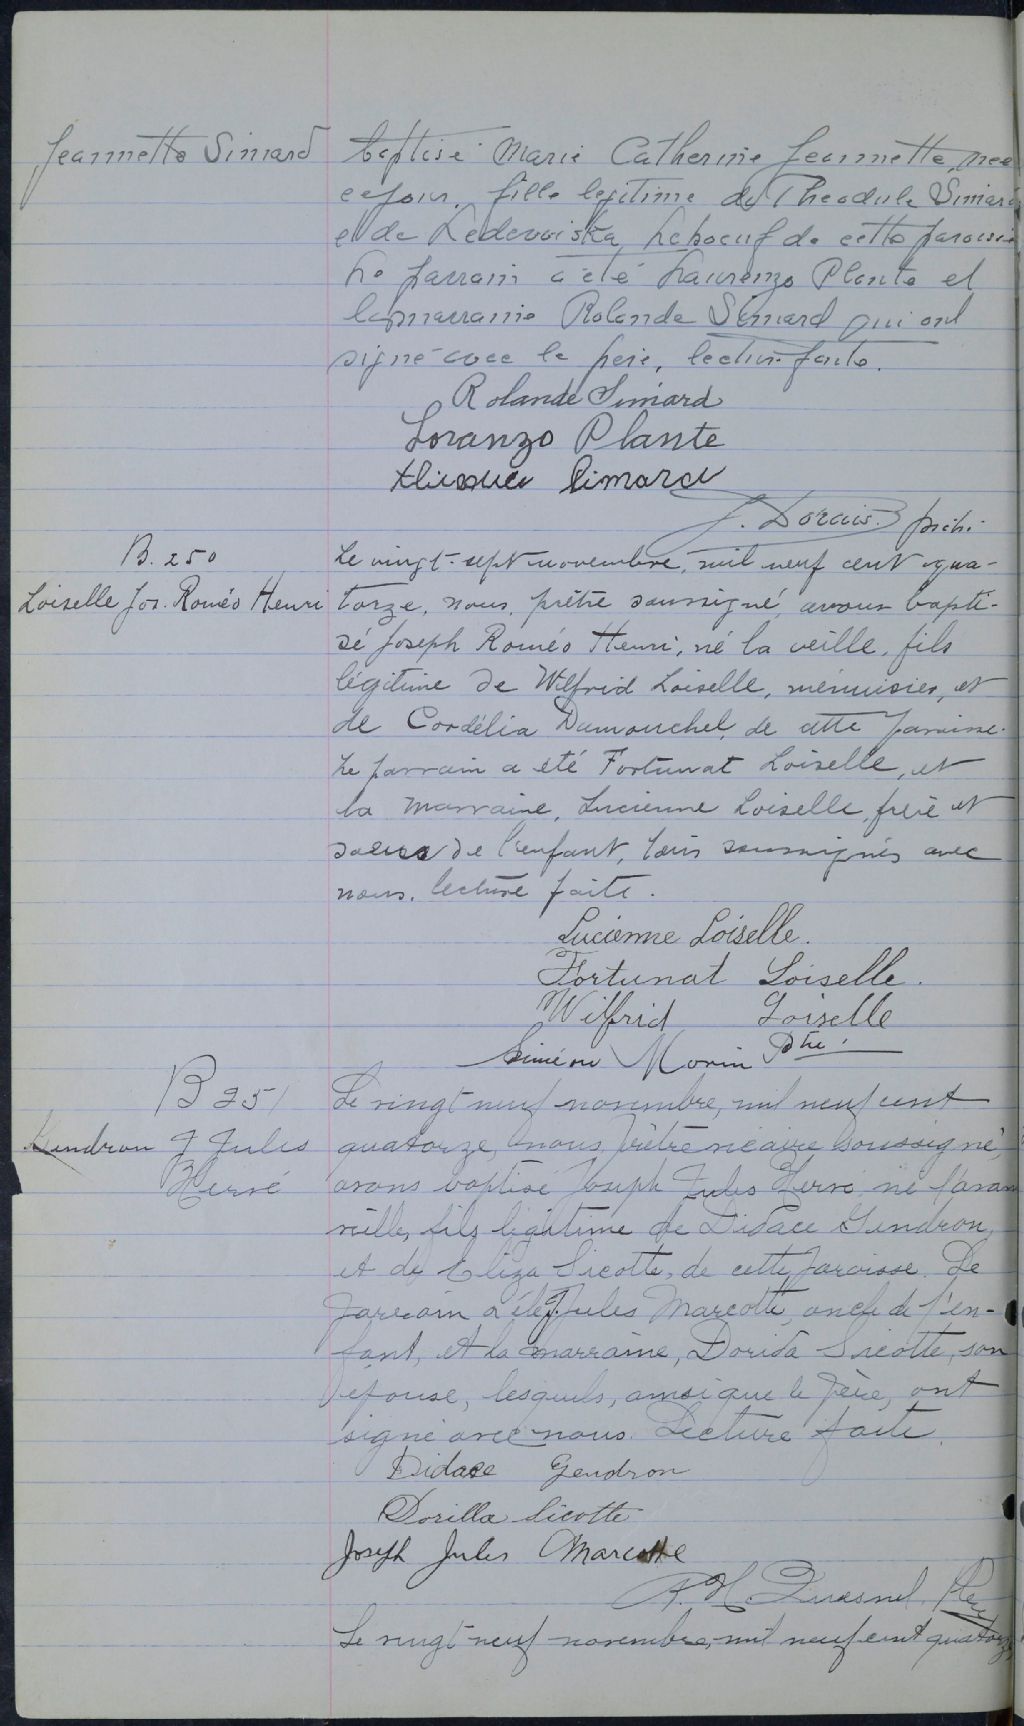 Jeannette Simard
baptisé Marie Catherine Jeannette, née
ce jour, fille legitime de Theodule Simard
et de Ledevoiska Leboeuf de cette paroisse
Le parrain a été Laurenzo Plante et
la marraine Rolande Simard qui ont
signé avec le père, lecture faite.
Rolande Simard
Loranzo Plante
Simard
J. Dorais
B. 250
Loiselle Jos. Roméo Henri
Le vingt-sept novembre, mil neuf cent qua-
torze, nous, prêtre soussigné, avons bapti-
sé Joseph Roméo Henri, né la veille, fils
légitime de Wilfrid Loiselle, menuisier, et
de Cordélia Dumouchel, de cette paroisse.
Le parrain a été Fortunat Loiselle, et
la marraine, Lucienne Loiselle, frère et
soeur de l'enfant, tous soussignés avec
nous. lecture faite.
Lucienne Loiselle.
Fortunat Loiselle.
Wilfrid Loiselle
Siméon Morin Ptre.
B 251
Gendron J Jules
Hervé
Le vingt neuf novembre, mil neuf cent
quatorze, nous, prêtre vicaire soussigné,
avons baptisé Joseph Jules Hervé, né l'avant
veille, fils légitime de Didace Gendron,
et de Eliza Sicotte, de cette paroisse. Le
parrain a été J. Jules Marcotte, oncle de l'en-
fant, et la marraine, Dorida Sicotte, son
épouse, lesquels, ainsi que le père, ont
signé avec nous. Lecture faite.
Didace Gendron
Dorilla Sicotte
Joseph Jules Marcotte
A. H. Quesnel, Ptre
Le vingt-neuf novembre, mil neuf cent quatorze,